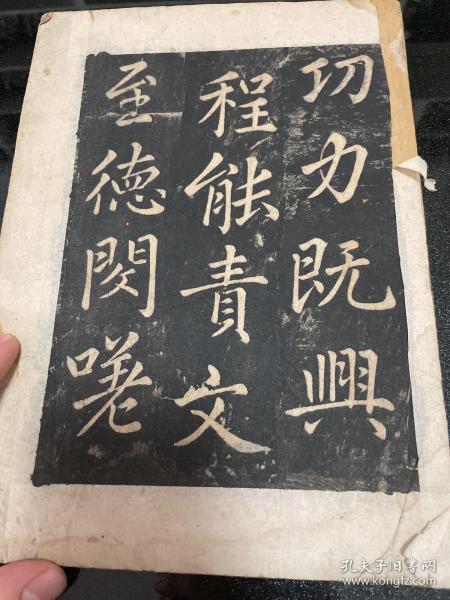 功力既興
程能責文
至徳閔
孔夫子旧书网
www.kongfz.com